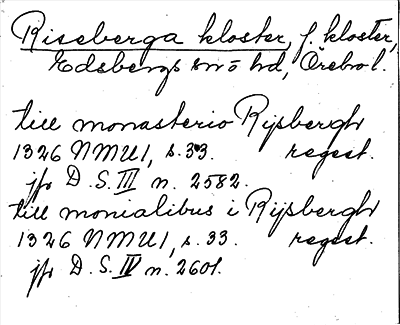 Riseberga kloster, f. kloster,
Edsbergs sn ö hd, Örebro l.
till monasterio Rijsbergh
1326 NMU1, s. 33. regest.
jfr D. S. III n. 2582.
till monialibus i Rijsbergh
1326 NMU1, s. 33. regest.
jfr D. S. IV n. 2601.